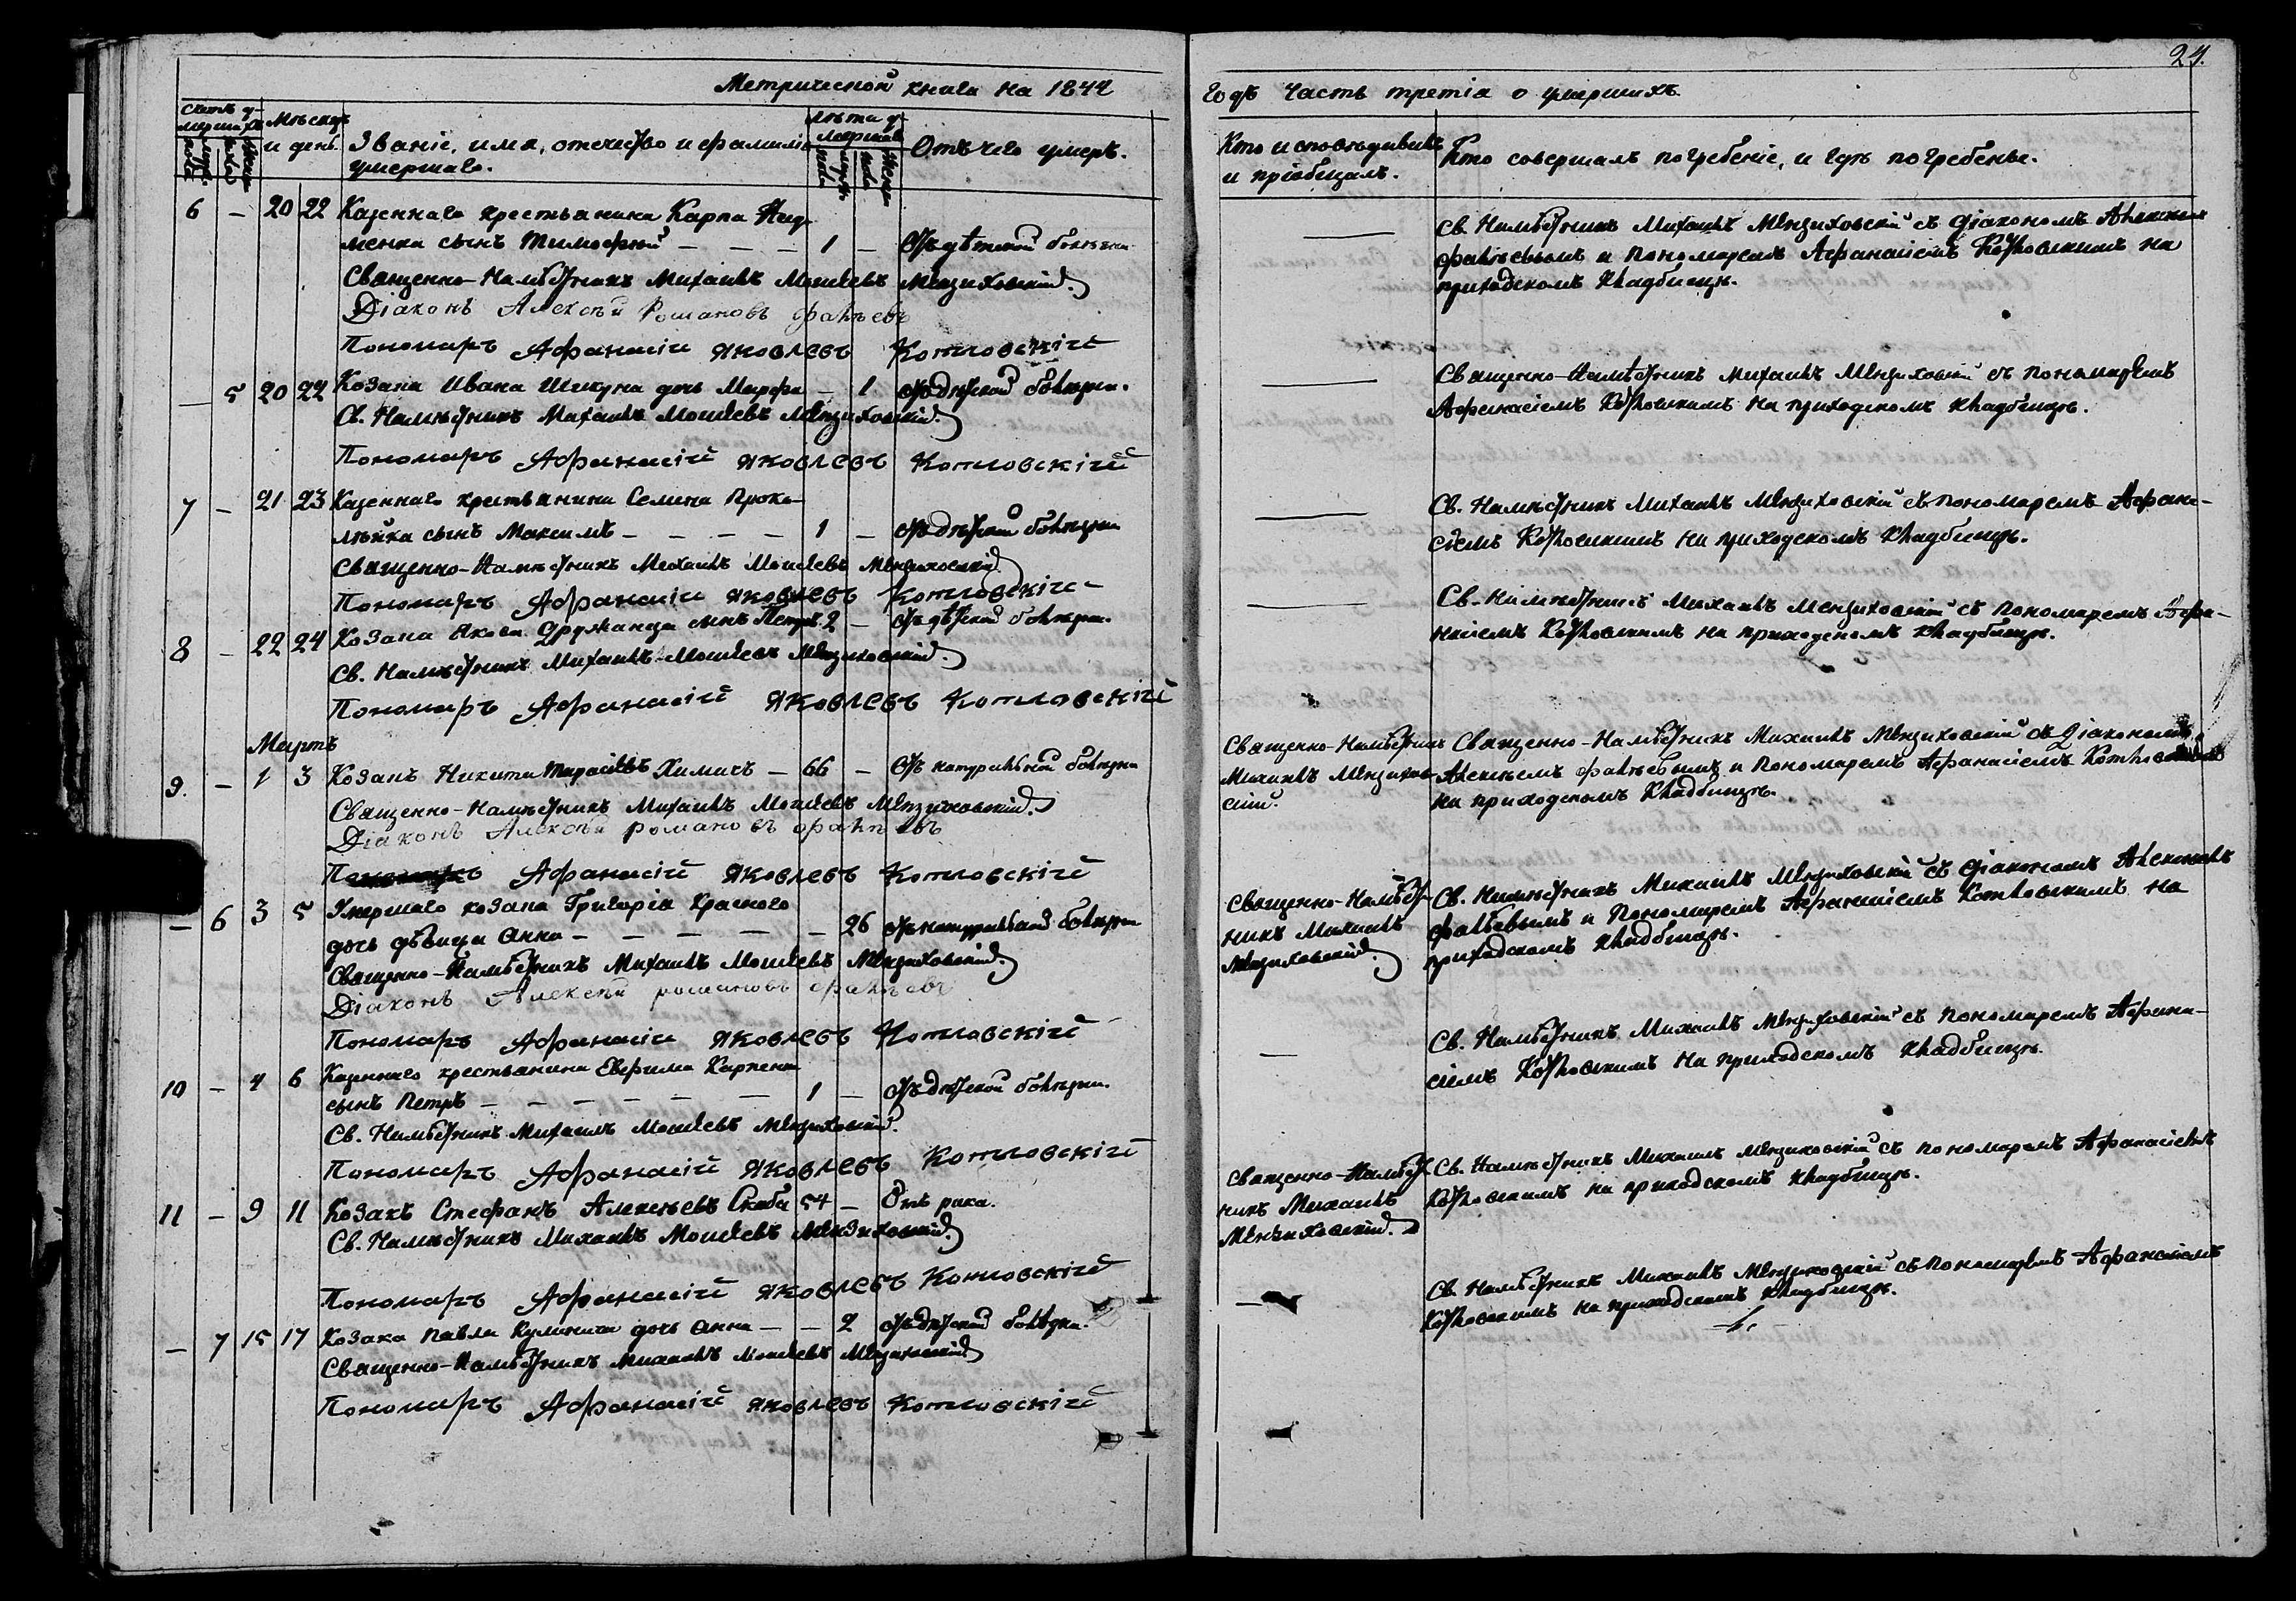 24.
Метрической книга на 1842
годъ Часть третіа о умершихъ.
Счетъ у-
мершихъ
Мѣсяцъ
и день.
Званіе, имя, отечество и фамилія
умершаго.
Лѣта у-
мершаго
Отъ чего умеръ.
мужеска пола
женска пола
мужеска пола
женска пола
Кто исповѣдывалъ
и пріобщалъ.
Кто совершалъ погребеніе, и гдѣ погребены.
6 — 20 22 Казеннаго крестьянина Карпа
менка сынъ Тимофей — — — 1 — Отъ дѣтской болѣзни
Священно-Намѣстникъ Михаилъ Моисеевъ Мензиховскій.
Діаконъ Алексѣй Романовъ Фалѣевъ
Пономаръ Афанасій Яковлевъ Котловскій
— Св. Намѣстникъ Михаилъ Мензиховскій съ Діакономъ Алексѣемъ
Фалѣевымъ и Пономаремъ Афанасіемъ Котловскимъ на
приходскомъ кладбищѣ.
— 5 20 22 Козака Ивана Шикуна дочь Марфа — 1 Отъ дѣтской болѣзни.
Св. Намѣстникъ Михаилъ Моисеевъ Мензиховскій.
Пономаръ Афанасій Яковлевъ Котловскій
— Священно-Намѣстникъ Михаилъ Мензиховскій съ пономаремъ
Афанасіемъ Котловскимъ на приходскомъ кладбищѣ.
7 — 21 23 Казеннаго крестьянина Семена
сынъ Максимъ — — — — 1 — Отъ дѣтской болѣзни
Священно-Намѣстникъ Михаилъ Моисеевъ Мензиховскій
Пономаръ Афанасій Яковлевъ Котловскій
— Св. Намѣстникъ Михаилъ Мензиховскій съ пономаремъ Афана-
сіемъ Котловскимъ на приходскомъ кладбищѣ.
8 — 22 24 Козака Якова Дружанца сынъ Петръ 2 — Отъ дѣтской болѣзни.
Св. Намѣстникъ Михаилъ Моисеевъ Мензиховскій.
Пономаръ Афанасій Яковлевъ Котловскій
— Св. Намѣстникъ Михаилъ Мензиховскій съ пономаремъ Афа-
насіемъ Котловскимъ на приходскомъ кладбищѣ.
Мартъ
9. — 1 3 Козакъ Никита Тарасіевъ Химичъ — 66 — Отъ натуральной болѣзни
Священно-Намѣстникъ Михаилъ Моисеевъ Мензиховскій.
Діаконъ Алексѣй Романовъ Фалѣевъ
Пономаръ Афанасій Яковлевъ Котловскій
Священно-Намѣстникъ
Михаилъ Мензихов-
скій.
Священно-Намѣстникъ Михаилъ Мензиховскій съ Діакономъ
Алексѣемъ Фалѣевымъ и Пономаремъ Афанасіемъ Котловскимъ
на приходскомъ кладбищѣ.
— 6 3 5 Умершаго козака Григорія Краснаго
дочь дѣвица Анна — — — — — — 26 Отъ натуральной болѣзни
Священно-Намѣстникъ Михаилъ Моисеевъ Мензиховскій.
Діаконъ Алексѣй Романовъ Фалѣевъ
Пономаръ Афанасій Яковлевъ Котловскій
Священно-Намѣст-
никъ Михаилъ
Мензиховскій.
Св. Намѣстникъ Михаилъ Мензиховскій съ Діакономъ Алексѣемъ
Фалѣевымъ и Пономаремъ Афанасіемъ Котловскимъ на
приходскомъ кладбищѣ.
10 — 4 6 Казеннаго крестьянина Евфима Карпенка
сынъ Петръ — — — — — — 1 — Отъ дѣтской болѣзни.
Св. Намѣстникъ Михаилъ Моисеевъ Мензиховскій.
Пономаръ Афанасій Яковлевъ Котловскій
— Св. Намѣстникъ Михаилъ Мензиховскій съ пономаремъ Афана-
сіемъ Котловскимъ на приходскомъ кладбищѣ.
11 — 9 11 Козакъ Стефанъ Алексѣевъ Скиба 54 — Отъ рака.
Св. Намѣстникъ Михаилъ Моисеевъ Мензиховскій.
Пономаръ Афанасій Яковлевъ Котловскій
Священно-Намѣст-
никъ Михаилъ
Мензиховскій.
Св. Намѣстникъ Михаилъ Мензиховскій съ пономаремъ Афанасіемъ
Котловскимъ на приходскомъ кладбищѣ.
— 7 15 17 Козака Павла Кулинича дочь Анна — — 2 Отъ дѣтской болѣзни.
Священно-Намѣстникъ Михаилъ Моисеевъ Мензиховскій
Пономаръ Афанасій Яковлевъ Котловскій
— Св. Намѣстникъ Михаилъ Мензиховскій съ пономаремъ Афанасіемъ
Котловскимъ на приходскомъ кладбищѣ.